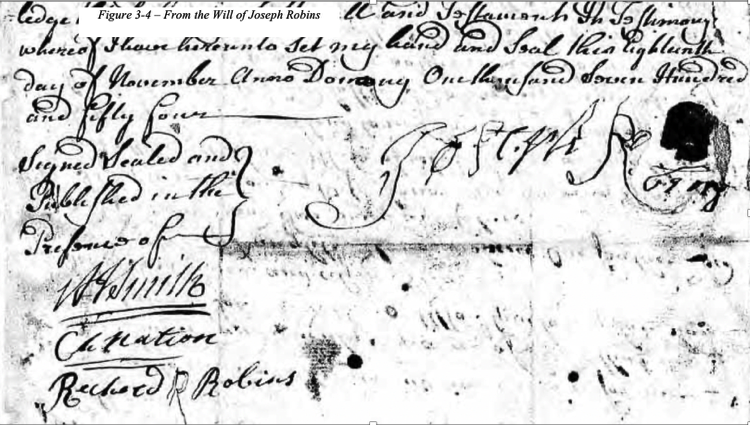 Figure 3-4 – From the Will of Joseph Robins
ledge and Testament In Testimony
whereof I have hereunto Set my hand and Seal this Eighteenth
day of November Anno Domony One thousand Seven Hundred
and fifty four
Signed Sealed and
Published in the
Presence of
Joseph Ro
Smith
Nation
Richard R Robins